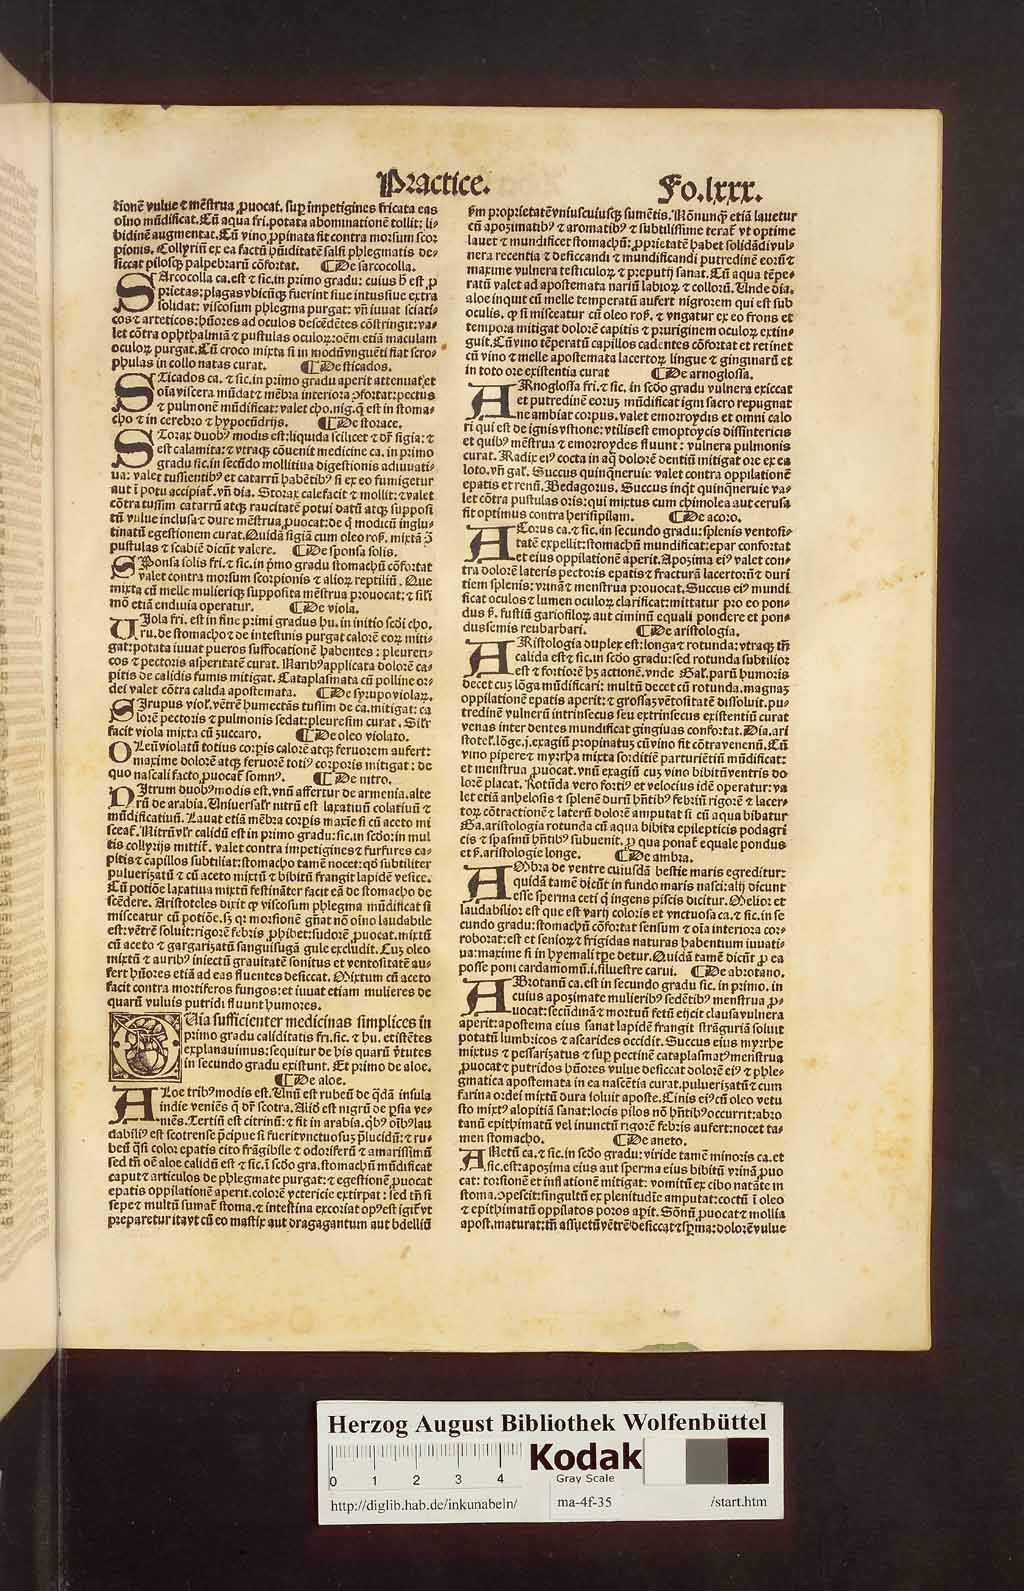 Practice.
Fo.lxxx.
tionē vulue ⁊ mēstrua ꝓuocat. suꝑ impetigines fricata eas
oīno mūdificat. Cū aqua fri. potata abominationē tollit: li⸗
bidinē augmentat. Cū vino ꝓpinata fit contra morsum scor
pionis. Collyriū ex ea factū hūiditatē salsi phlegmatis de⸗
siccat pilosqꝫ palpebrarū cōfortat. ¶De sarcocolla.
SArcocolla ca. est ⁊ sic. in primo gradu: cuius hʼ est ꝓ
prietas: plagas vbicūqꝫ fuerint siue intus siue extra
solidat: viscosum phlegma purgat: vñ iuuat sciati⸗
cos ⁊ arteticos: hūores ad oculos descēdētes cōstringit: va⸗
let cōtra ophthalmiā ⁊ pustulas oculoꝝ: oēm etiā maculam
oculoꝝ purgat. Cū croco mixta si in modū vnguēti fiat scro⸗
phulas in collo natas curat. ¶De sticados.
STicados ca. ⁊ sic. in primo gradu aperit attenuat, et
oīa viscera mūdat ⁊ mēbra interiora ꝯfortat: pectus
⁊ pulmonē mūdificat: valet cho. nig. q̄ est in stoma⸗
cho ⁊ in cerebro ⁊ hypocūdrijs. ¶De storace.
STorax duobꝰ modis est: liquida scilicet ⁊ dʼr sigia: ⁊
est calamita: ⁊ vtraqꝫ cōuenit medicine ca. in primo
gradu sic. in secūdo mollitiua digestionis adiuuati⸗
ua: valet tussientibꝰ et catarrū habētibꝰ si ex eo fumigetur
aut ī potu accipiat̄. vñ dia. Storax calefacit ⁊ mollit: ⁊ valet
cōtra tussim catarrū atqꝫ raucitatē potui datū atqꝫ supposi
tū vulue inclusa ⁊ dure mēstrua ꝓuocat: de q̄ modicū inglu⸗
tinatū egestionem curat. Quidā sigiā cum oleo roſ. mixtā ꝯͣ
pustulas ⁊ scabiē dicūt valere. ¶De sponsa solis.
SPonsa solis fri. ⁊ sic. in p̄mo gradu stomachū cōfortat
valet contra morsum scorpionis ⁊ alioꝝ reptiliū. Que
mixta cū melle mulieriqꝫ supposita mēstrua prouocat: ⁊ sili
mō etiā endiuia operatur. ¶De viola.
VIola fri. est in fine primi gradus hu. in initio secūdi cho.
ru. de stomacho ⁊ de intestinis purgat calorē eoꝝ miti⸗
gat: potata iuuat pueros suffocationē habentes: pleureti⸗
cos ⁊ pectoris asperitatē curat. Naribꝰ applicata dolorē ca⸗
pitis de calidis fumis mitigat. Cataplasmata cū polline or⸗
dei valet cōtra calida apostemata. ¶De syrupo violaꝝ.
SIrupus viol. vētrē humectās tussim de ca. mitigat: ca
lorē pectoris ⁊ pulmonis sedat: pleuresim curat. Silʼr
facit viola mixta cū zuccaro. ¶De oleo violato.
OLeū violatū totius corpis calorē atqꝫ feruorem aufert:
maxime dolorē atqꝫ feruorē totiꝰ corporis mitigat: de
quo nascali facto ꝓuocat̄ somnꝰ. ¶De nitro.
NItrum duobꝰ modis est. vnū affertur de armenia. alte
rū de arabia. Uniuersalʼr nitrū est laxatiuū colatiuū ⁊
mūdificatiuū. Lauat etiā mēbra corpis maxīe si cū aceto mi
sceat̄. Nitrū vʼr calidū est in primo gradu: sic. in secōo: in mul
tis collyrijs mittit̄. valet contra impetigines ⁊ furfures ca⸗
pitis ⁊ capillos subtiliat: stomacho tamē nocet: qd̄ subtiliter
pulueriȥatū ⁊ cū aceto mixtū ⁊ bibitū frangit lapidē vesice.
Cū potiōe laxatiua mixtū festināter facit eā de stomacho de
scēdere. Aristoteles dixit ꝙ viscosum phlegma mūdificat si
misceatur cū potiōe. sꝫ qꝛ morsionē gn̄at nō oīno laudabile
est: vētrē soluit: rigorē febris ꝓhibet: sudorē ꝓuocat. mixtū
cū aceto ⁊ gargariȥatū sanguisugā gule excludit. Cuꝫ oleo
mixtū ⁊ auribꝰ iniectū grauitatē sonitus et ventositatē au⸗
fert hūores etiā ad eas fluentes desiccat. Mixtum cū aceto
facit contra mortiferos fungos: et iuuat etiam mulieres de
quarū vuluis putridi fluunt humores.
QUia sufficienter medicinas simplices in
primo gradu caliditatis fri. sic. ⁊ hu. existētes
explanauimus: sequitur de his quarū v̄tutes
in secundo gradu existunt. Et primo de aloe.
¶De aloe.
ALoe tribꝰ modis est. Unū est rubeū de q̄dā insula
indie veniēs q̄ dʼr scotra. Aliud est nigrū de ꝑsia ve⸗
niēs. Tertiū est citrinū: ⁊ fit in arabia. q̄bꝰ oībꝰ lau
dabiliꝰ est scotrense p̄cipue si fuerit vnctuosuꝫ p̄lucidū: ⁊ ru⸗
beū q̄si color epatis cito frāgibile ⁊ odoriferū ⁊ amarissimū
sed tn̄ oē aloe calidū est ⁊ sic. ī secōo gra. stomachū mūdificat
caput ⁊ articulos de phlegmate purgat: ⁊ egestionē ꝓuocat
epatis oppilationē aperit. colorē yctericie extirpat: sed tn̄ si
sepe ⁊ multū sumat̄ stoma. ⁊ intestina excoriat opꝰ est igit̄ vt
preparetur ita vt cū eo mastix aut dragagantum aut bdelliū
ẜm proprietatē vniuscuiusqꝫ sumētis. Nōnunqꝫ etiā lauetur
cū apoȥimatibꝰ ⁊ aromatibꝰ ⁊ subtilissime terat̄ vt optime
lauet ⁊ mundificet stomachū: ꝓprietatē habet solidādi vul⸗
nera recentia ⁊ desiccandi ⁊ mundificandi putredinē eorū ⁊
maxime vulnera testiculoꝝ ⁊ preputij sanat. Cū aqua tēpe⸗
ratū valet ad apostemata nariū labioꝝ ⁊ colloꝝ. Unde dia.
aloe inquit cū melle temperatū aufert nigrorem qui est sub
oculis. ꝙ si misceatur cū oleo roſ. ⁊ vngatur ex eo frons et
tempora mitigat dolorē capitis ⁊ pruriginem oculoꝝ extin⸗
guit. Cū vino tēperatū capillos cadentes cōfortat et retinet
cū vino ⁊ melle apostemata lacertoꝝ lingue ⁊ gingiuarū et
in toto ore existentia curat ¶De arnoglossa.
ARnoglossa fri. ⁊ sic. in secōo gradu vulnera exiccat
et putredinē eoruꝫ mūdificat igni sacro repugnat
ne ambiat corpus. valet emorroydis et omni calo
ri qui est de ignis vstione: vtilis est emoptoycis dissintericis
et quibꝰ mēstrua ⁊ emorroydes fluunt: vulnera pulmonis
curat. Radix eiꝰ cocta in aq̄ dolorē dentiū mitigat ore ex ea
loto. vñ gal. Succus quinqꝫneruie valet contra oppilationē
epatis et renū. Pedagorus. Succus inq̄t quinqꝫneruie va⸗
let cōtra pustulas oris: qui mixtus cum chimolea aut cerusa
fit optimus contra herisipilam. ¶De acoro.
ACorus ca. ⁊ sic. in secundo gradu: splenis ventosi⸗
tatē expellit: stomachū mundificat: epar confortat
et eius oppilationē aperit. Apoȥima eiꝰ valet con⸗
tra dolorē lateris pectoris epatis ⁊ fracturā lacertorū ⁊ duri
tiem splenis: vrinā ⁊ menstrua prouocat. Succus eiꝰ mundi
ficat oculos ⁊ lumen oculoꝝ clarificat: mittatur pro eo pon⸗
dus ẜ. fustiū gariofiloꝝ aut ciminū equali pondere et pon⸗
dus semis reubarbari. ¶De aristologia.
ARistologia duplex est: longa ⁊ rotunda: vtraqꝫ tn̄
calida est ⁊ sic. in secōo gradu: sed rotunda subtilior
est ⁊ fortiorē hꝫ actionē. vnde Gal. parū humoris
decet cuꝫ lōga mūdificari: multū decet cū rotunda. magnaꝫ
oppilationē epatis aperit: ⁊ grossaꝫ vētositatē dissoluit. pu⸗
tredinē vulnerū intrinsecus seu extrinsecus existentiū curat
venas inter dentes mundificat gingiuas confortat. Dia. ari
stotel. lōge. j. exagiū propinatuꝫ cū vino fit cōtra venenū. Cū
vino pipere ⁊ myrrha mixta sorditiē parturiētiū mūdificat:
et menstrua ꝓuocat. vnū exagiū cuꝫ vino bibitū ventris do
lorē placat. Rotūda vero fortiꝰ et velocius idē operatur: va
let etiā anhelosis ⁊ splenē durū hn̄tibꝰ febriū rigorē ⁊ lacer⸗
toꝝ cōtractionē ⁊ laterū dolorē amputat si cū aqua bibatur
Ga. aristologia rotunda cū aqua bibita epilepticis podagri
cis ⁊ spasmū hn̄tibꝰ subuenit. ꝓ qua ponat̄ equale pondus
et ẜ. aristologie longe. ¶De ambra.
AMbra de ventre cuiusdā bestie maris egreditur:
quidā tamē dicūt in fundo maris nasci: alij dicunt
esse sperma ceti ꝙ ingens piscis dicitur. Melior et
laudabilior est que est varij coloris et vnctuosa ca. ⁊ sic. in se
cundo gradu: stomachū cōfortat sensum ⁊ oīa interiora cor⸗
roborat: est et senioꝝ ⁊ frigidas naturas habentium iuuati⸗
ua: maxime si in hyemali tp̄e detur. Quidā tamē dicūt ꝓ ea
posse poni cardamomū. i. siluestre carui. ¶De abrotano.
ABrotanū ca. est in secundo gradu sic. in primo. in
cuius apoȥimate mulieribꝰ sedētibꝰ menstrua ꝓ⸗
uocat: secūdinā ⁊ mortuū fetū eijcit clausa vulnera
aperit: apostema eius sanat lapidē frangit strāguriā soluit
potatū lumbricos ⁊ ascarides occidit. Succus eius myrrhe
mixtus ⁊ pessariȥatus ⁊ suꝑ pectinē cataplasmatꝰ menstrua
ꝓuocat ⁊ putridos hūores vulue desiccat dolorē eiꝰ ⁊ phle⸗
gmatica apostemata in ea nascētia curat. pulueriȥatū ⁊ cum
farina ordei mixtū dura soluit aposte. Cinis eiꝰ cū oleo vetu
sto mixtꝰ alopitiā sanat: locis pilos nō hn̄tibꝰ occurrit: abro
tanū epithimatū vel inunctū rigorē febris aufert: nocet ta⸗
men stomacho. ¶De aneto.
ANetū ca. ⁊ sic. in secōo gradu: viride tamē minoris ca. et
sic. est: apoȥima eius aut sperma eius bibitū vrinā ꝓuo
cat: torsionē et inflationē mitigat: vomitū ex cibo natāte in
stoma. ꝯpescit: singultū ex plenitudīe amputat: coctū ī oleo
⁊ epithimatū oppilatos poros aꝑit. Sōnū ꝓuocat ⁊ mollia
apost. maturat: tn̄ assuetū vētrē desiccat ⁊ sꝑma: dolorē vulue
Herzog August Bibliothek Wolfenbüttel
0 1 2 3 4
Kodak
Gray Scale
http://diglib.hab.de/inkunabeln/
ma-4f-35
/start.htm